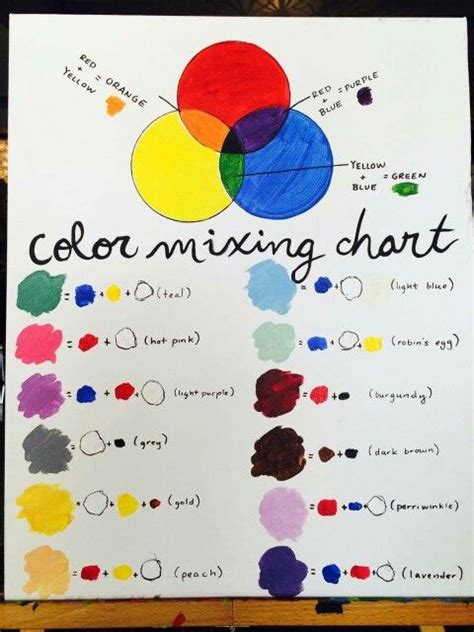 RED
+ = ORANGE
YELLOW
RED
+ = PURPLE
BLUE
YELLOW
+ = GREEN
BLUE
color mixing chart
= + + (teal)
= + (light blue)
= + (hot pink)
= + + (robin's egg)
= + + (light purple)
= + (burgundy)
= + (grey)
= + (dark brown)
= + + (gold)
= + + (perriwinkle)
= + + (peach)
= + + (lavender)